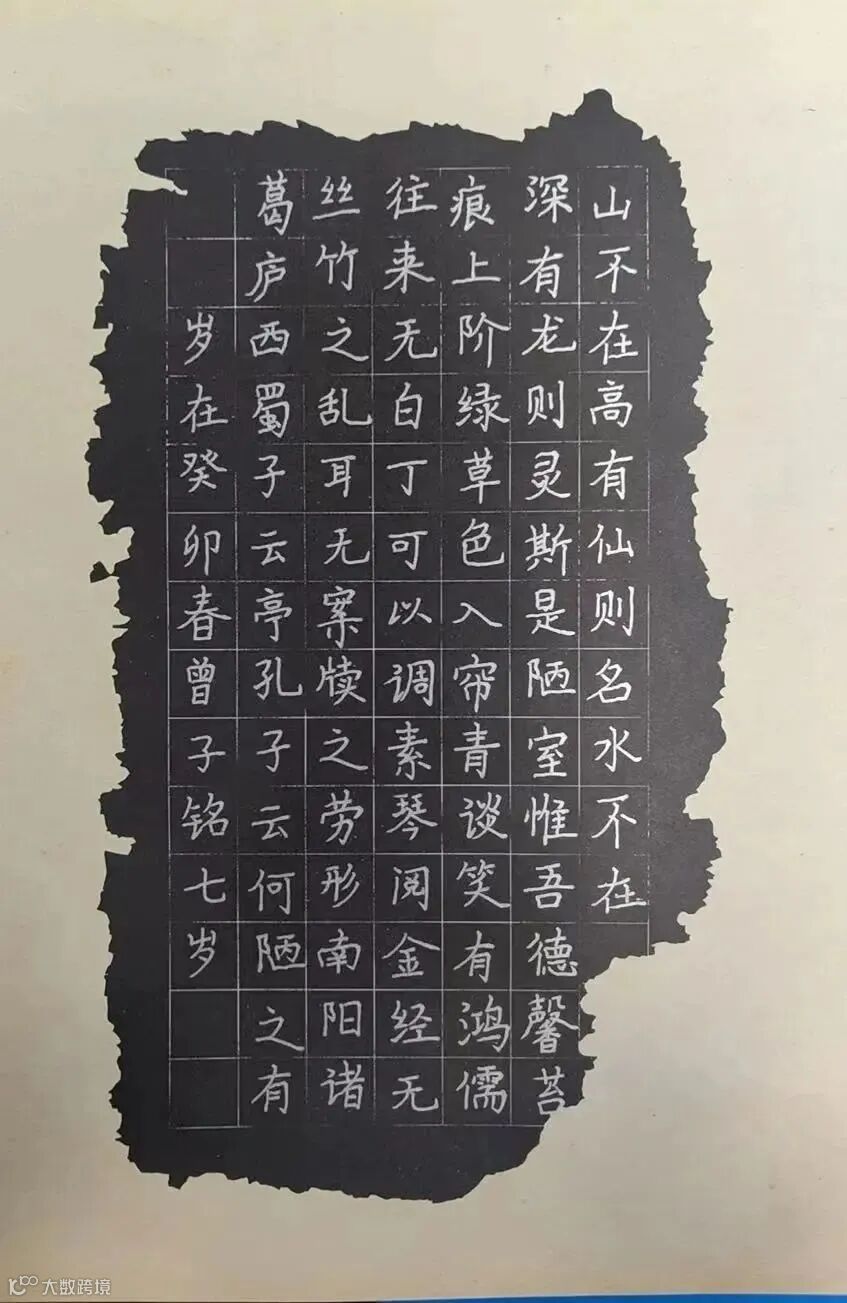 山不在高有仙则名水不在
深有龙则灵斯是陋室惟吾德馨苔
痕上阶绿草色入帘青谈笑有鸿儒
往来无白丁可以调素琴阅金经无
丝竹之乱耳无案牍之劳形南阳诸
葛庐西蜀子云亭孔子云何陋之有
岁在癸卯春曾子铭七岁
大数跨境